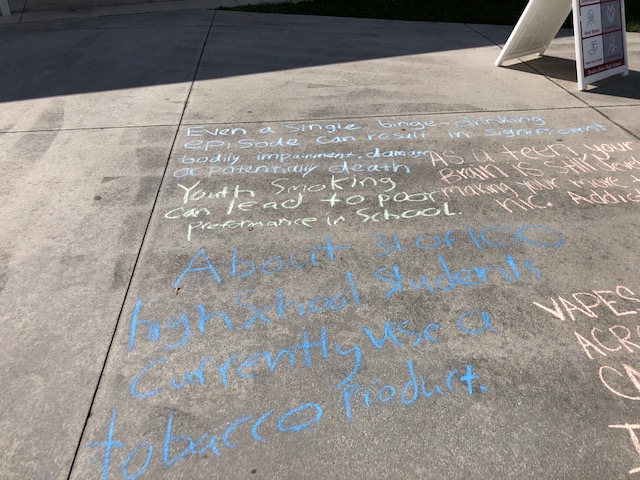 Even a single binge-drinking
episode can result in signific cant
bodily impairment, damage
or potentially death
Youth Smoking
can lead to poor
preformance in School.
About 31 of 100
high School Students
Currently use a
tobacco Product.
As a teen your
Brain is still
making your more
nic. Addic
VAPES
ACR